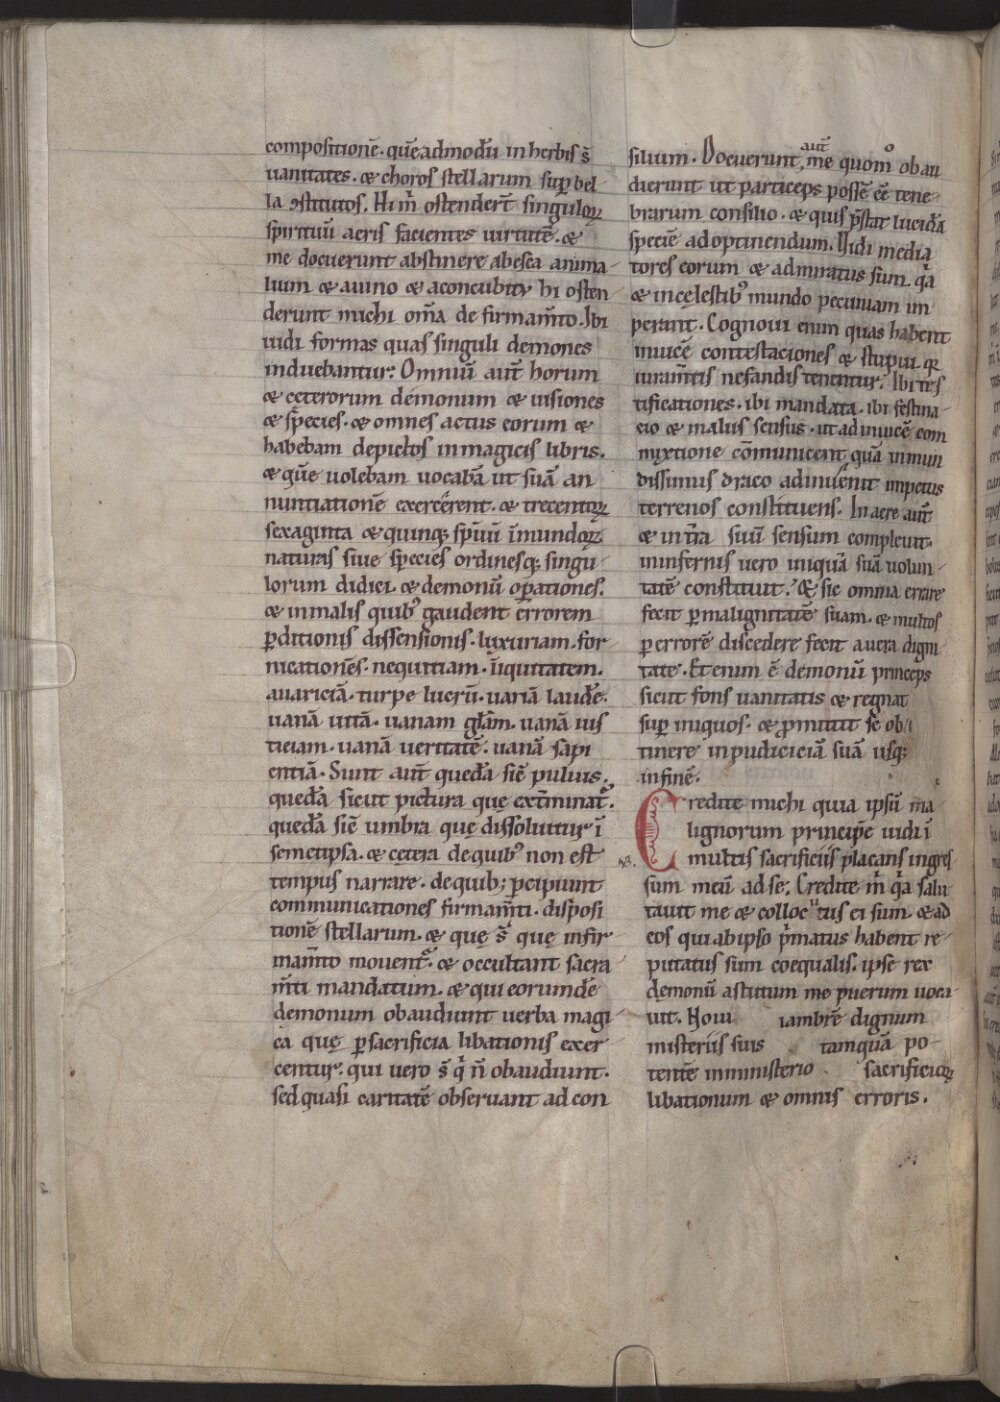 compositionē. quēadmodū in herbis s̄
uanitates. & choros stellarum suꝑ bel-
la ꝯstitutos. Hi m̄ ostender̄t singuloꝝ
spirituū aeris facientes uirtutē. &
me docuerunt abstinere ab esca anima-
lium & a uino & a concubitu hi osten
derunt michi om̄a de firmam̄to. Ibi
uidi formas quas singuli demones
induebantur. Omniū aut̄ horum
& ceterorum demonum & uisiones
& species. & omnes actus eorum &
habebam depictos in magicis libris.
& quē uolebam uocabā ut suā an
nuntiationē exercerent. & trecentoꝝ
sexaginta & quinq; sp̄uū īmundoꝝ
naturas siue species ordinesq; singu
lorum didici. & demonū oꝑationes.
& in malis quibꝰ gaudent errorem
ꝑditionis dissensionis. luxuriam. for-
nicationēs. nequitiam. īiquitatem.
auariciā. turpe lucrū. uariā laudē.
uanā uitā. uanam gl̄am. uanā ius
ticiam. uanā ueritatē. uanā sapi
entiā. Sunt aut̄ quedā sic̄ puluis.
quedā sicut pictura quę ext̄minat᷑.
quedā sic̄ umbra quę dissoluitur ī
semetipsa. & cetera de quibꝰ non est
tempus narrare. de quib; ꝑcipiunt
communicationes firmam̄ti. disposi
tionē stellarum. & quę s̄ quę in fir-
mam̄to mouent᷑. & occultant sacra-
m̄ti mandatum. & qui eorundē
demonum obaudiunt uerba magi-
ca quę ꝑ sacrificia libationis exer-
centur. qui uero s̄ q̄ n̄ obaudiunt.
sed quasi caritatē obseruant ad con
silium. Docuerunt aut̄ me quomͦ obau
dierunt ut particeps possē eē tene-
brarum consilio. & quis p̄stat lucidā
speciē ad optinendum. Uidi media
tores eorum & admiratus sum qa
& in cęlestibꝰ mundo pecuniam im
perant. Cognoui enim quas habent
inuicē contestaciones & stupui. qꝛ
iuram̄tis nefandis tenentur. Ibi tes
tificationes. ibi mandata. ibi festina-
cio & malus sensus. ut ad inuicē com
mixtione cōmunicent quā inmun
dissimus draco adinuenit impetus
terrenos constituens. In aere aut̄
& in t̄ra suū sensum compleuit.
in infernis uero iniquā suā uolun-
tatē constituit. & sic omnia errare
fecit ꝑ malignitatē suam. & multos
ꝑ errorē discedere fecit a uera digni
tate. Et enim ē demonū princeps
sicut fons uanitatis & regnat
suꝑ iniquos. & promittit se ob
tinere inpudiciciā suā usq;
in finē.
Credite michi quia ipsū ma
lignorum principē uidi ī
multis sacrificiis placans ingres
sum meū ad se. Credite m̄ qa salu
tauit me & collocutus ei sum. & ad
eos qui ab ipso p̄matus habent re-
putatus sum coequalis. ipse rex
demonū astutum me puerum uoca-
uit. Noui iambrē dignum
misteriis suis tamquā po-
tentē in ministerio sacrificioꝝ
libationum & omnis erroris.